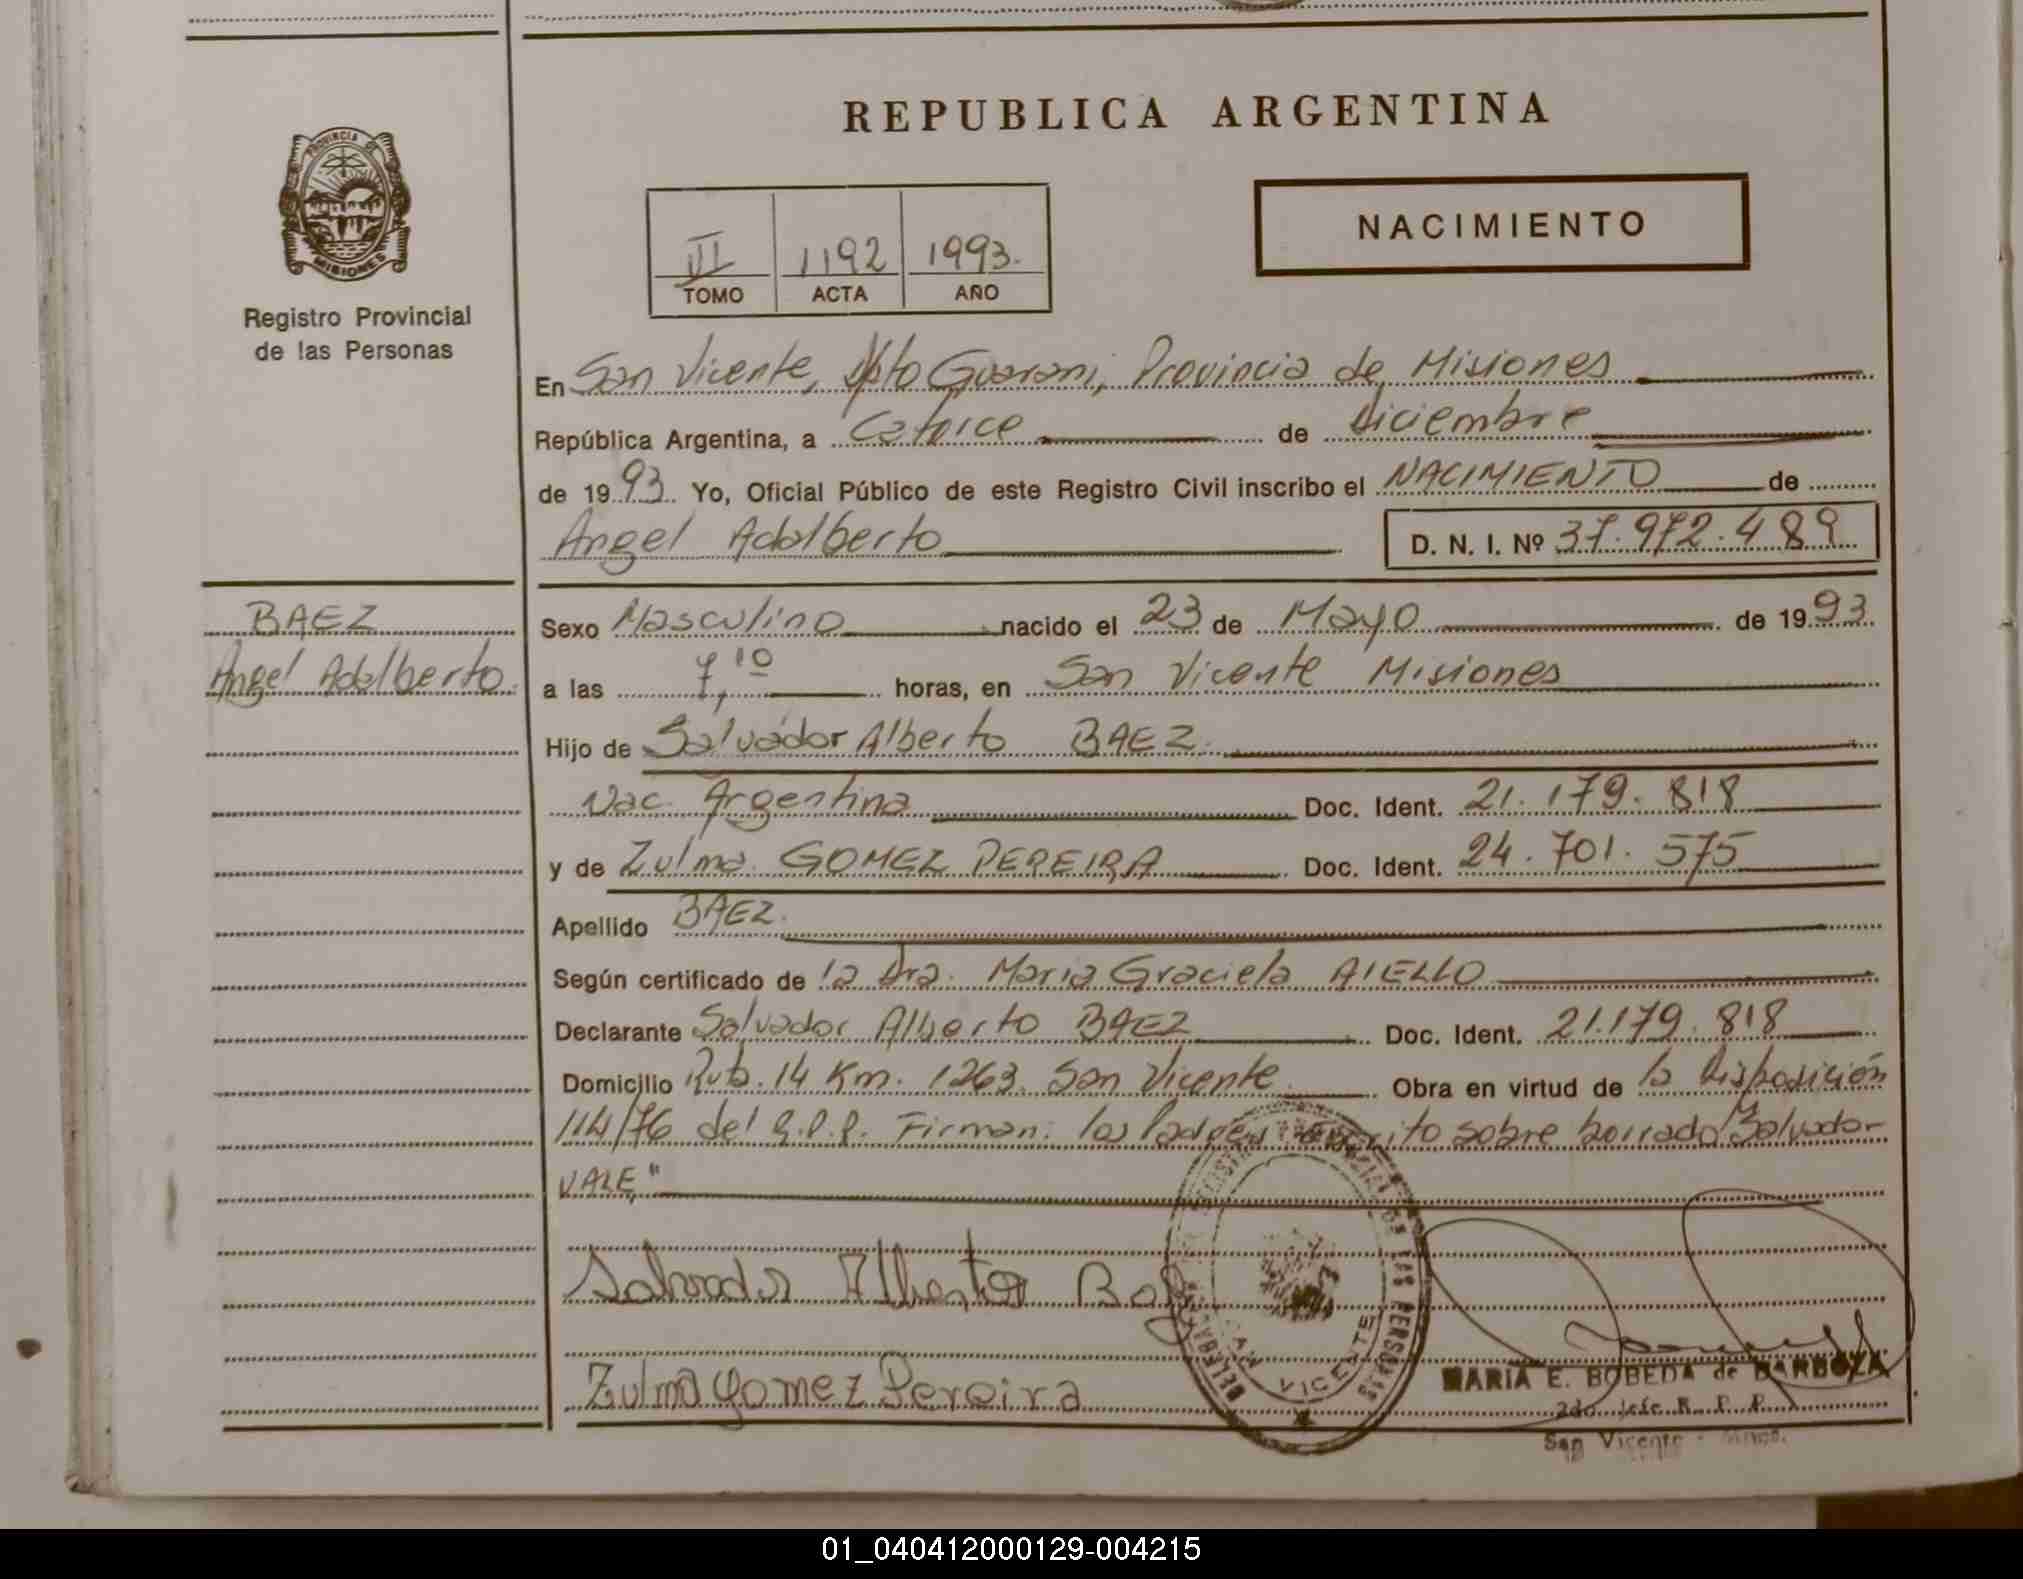 REPUBLICA ARGENTINA
PROVINCIA DE
MISIONES
Registro Provincial
de las Personas
NACIMIENTO
1192 1993.
TOMO ACTA AÑO
En San Vicente, Dpto Guarani, Provincia de Misiones
República Argentina, a Catorce de diciembre
de 1993. Yo, Oficial Público de este Registro Civil inscribo el NACIMIENTO de
Angel Adalberto D. N. I. Nº 37.972.489
BAEZ
Angel Adalberto.
Sexo Masculino nacido el 23 de Mayo de 1993
a las 7,10 horas, en San Vicente Misiones
Hijo de Salvador Alberto BAEZ.
Nac. Argentina Doc. Ident. 21.179.818
y de Zulma. GOMEZ PEREIRA Doc. Ident. 24.701.575
Apellido BAEZ.
Según certificado de la Dra. Maria Graciela AIELLO
Declarante Salvador Alberto BAEZ Doc. Ident. 21.179.818
Domicilio Ruta. 14 Km. 1263. San Vicente. Obra en virtud de la Disposición
114/76 del R.P.P. Firman: los Padres Escrito sobre borrado "Salvador
VALE"
Salvador Alberto Baez
Zulma Gomez Pereira
SAN VICENTE
MARIA E. BOBEDA de BARBOZA
2do. Jefe R. P. P.
San Vicente - Mnes.
01_040412000129-004215